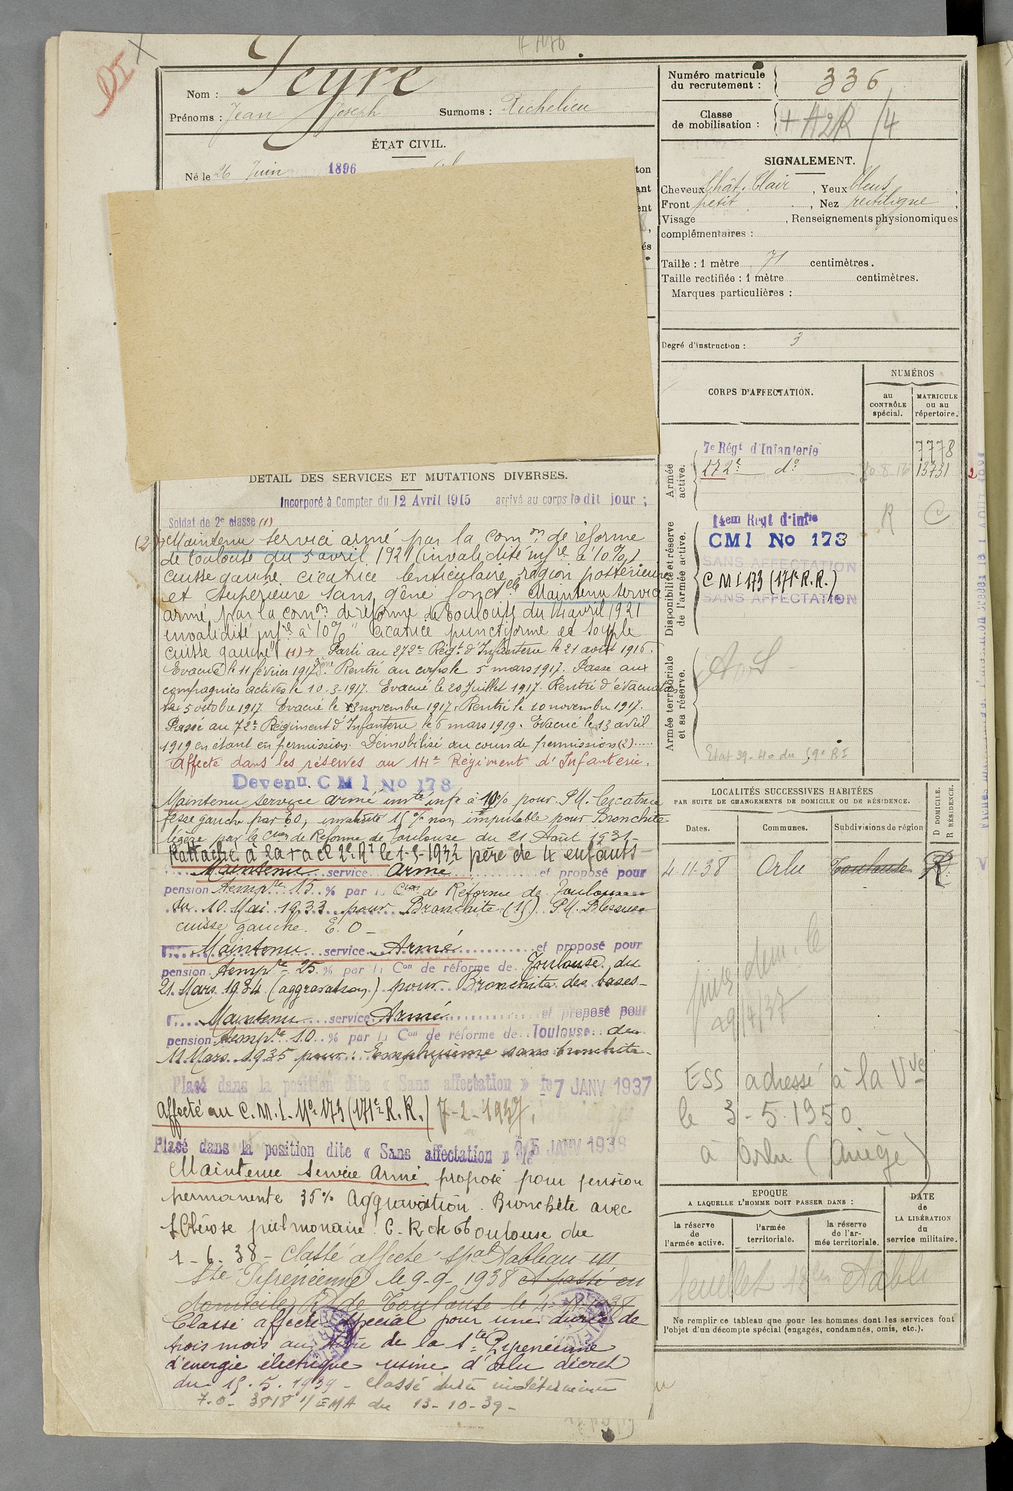 Nom : Teyre
Prénoms : Jean Joseph Surnoms : Richelieu
ÉTAT CIVIL.
Né le 26 Juin 1896
Numéro matricule du recrutement : 336
Classe de mobilisation : + A2R /4
SIGNALEMENT.
Cheveux Chât. Clair, Yeux bleus,
Front petit, Nez rectiligne,
Visage , Renseignements physionomiques
complémentaires :
Taille : 1 mètre 71 centimètres.
Taille rectifiée : 1 mètre centimètres.
Marques particulières :
Degré d'instruction : 3
CORPS D'AFFECTATION.
NUMÉROS
au CONTRÔLE spécial.
MATRICULE ou au répertoire.
Armée active.
7e Régt d'Infanterie 7778
272e do 13731
Disponibilité et réserve de l'armée active.
14em Regt d'infie R C
CMI No 173
SANS AFFECTATION
C M I 173 (171e R.R.)
SANS AFFECTATION
Armée territoriale et sa réserve.
Etat 39-40 du 59e RI
DÉTAIL DES SERVICES ET MUTATIONS DIVERSES.
Incorporé à Compter du 12 Avril 1915 arrivé au corps le dit jour ;
Soldat de 2e classe (1)
(2) Maintenu service armé par la comon de réforme
de toulouse du 5 avril 1921 (invalidité infre à 10%)
cuisse gauche. cicatrice lenticulaire région postérieure
et supérieure sans gêne fonctelle Maintenu service
armé par la comon de réforme de Toulouse du 4 avril 1921
invalidité infre à 10% "cicatrice punctiforme et souple
cuisse gauche" (1) → Parti au 272e Régt d'Infanterie le 21 août 1916.
Evacué le 11 février 1917. Rentré au corps le 5 mars 1917. Passé aux
compagnies actives le 10.3.1917. Evacué le 20 juillet 1917. Rentré d'évacuation
le 5 octobre 1917. Evacué le 3 novembre 1917. Rentré le 10 novembre 1917.
Passé au 72e Régiment d'Infanterie le 6 mars 1919. Evacué le 13 avril
1919 en étant en permission. Démobilisé au cours de permission (2).....
Affecté dans les réserves au 14e Régiment d'Infanterie.
Devenu C M I No 178
Maintenu service armé invté infre à 10% pour P.U. Cicatrice
fesse gauche par EO, invalidité 15% non imputable pour Bronchite
légère par la Con de Réforme de Toulouse du 21 Août 1931-
Rattaché à la la cl 2e Rt le 1-3-1932 père de 4 enfants
Maintenu service armé et proposé pour
pension temptre 15 % par la Con de Réforme de Toulouse
du 10 Mai 1933 pour Bronchite (15) P.U. Blessure
cuisse gauche. E.O -
Maintenu service Armé et proposé pour
pension tempre 25 % par la Con de réforme de Toulouse du
21 Mars 1934 (aggravation) pour Bronchite des bases-
Maintenu service Armé et proposé pour
pension tempre 10 % par la Con de réforme de Toulouse du
11 Mars 1935 pour : Emphysème sans bronchite.
Placé dans la position dite « Sans affectation » le 7 JANV 1937
affecté au C.M.I. No 173 (171e R.R.) 7-2-1937.
Placé dans la position dite « Sans affectation » le 15 JANV 1938
Maintenu Service Armé proposé pour pension
permanente 35% Aggravation. Bronchite avec
sclérose pulmonaire. C.R. de Toulouse du
1.6.38 - Classé affecté spal Tableau III
Sté Pyrénéenne le 9-9-1938 A passé en
domicile Rt de Toulouse le 4-11-1938
Classé affecté spécial pour une durée de
trois mois au titre de la Sté Pyrénéenne
d'énergie électrique usine d'Orlu décret
du 15.5.1939 - Classé durée indéterminée
7.0. 3818 1/EMA du 13-10-39-
LOCALITÉS SUCCESSIVES HABITÉES
PAR SUITE DE CHANGEMENTS DE DOMICILE OU DE RÉSIDENCE.
Dates. Communes. Subdivisions de région D DOMICILE. R RÉSIDENCE.
4-11-38 Orlu Toulouse R
29/4/37
ESS adressé à la Vve
le 3-5-1950.
à Orlu (Ariège)
EPOQUE
A LAQUELLE L'HOMME DOIT PASSER DANS :
la réserve de l'armée active.
l'armée territoriale.
la réserve de l'armée territoriale.
DATE de LA LIBÉRATION du service militaire.
Ne remplir ce tableau que pour les hommes dont les services font
l'objet d'un décompte spécial (engagés, condamnés, omis, etc.).